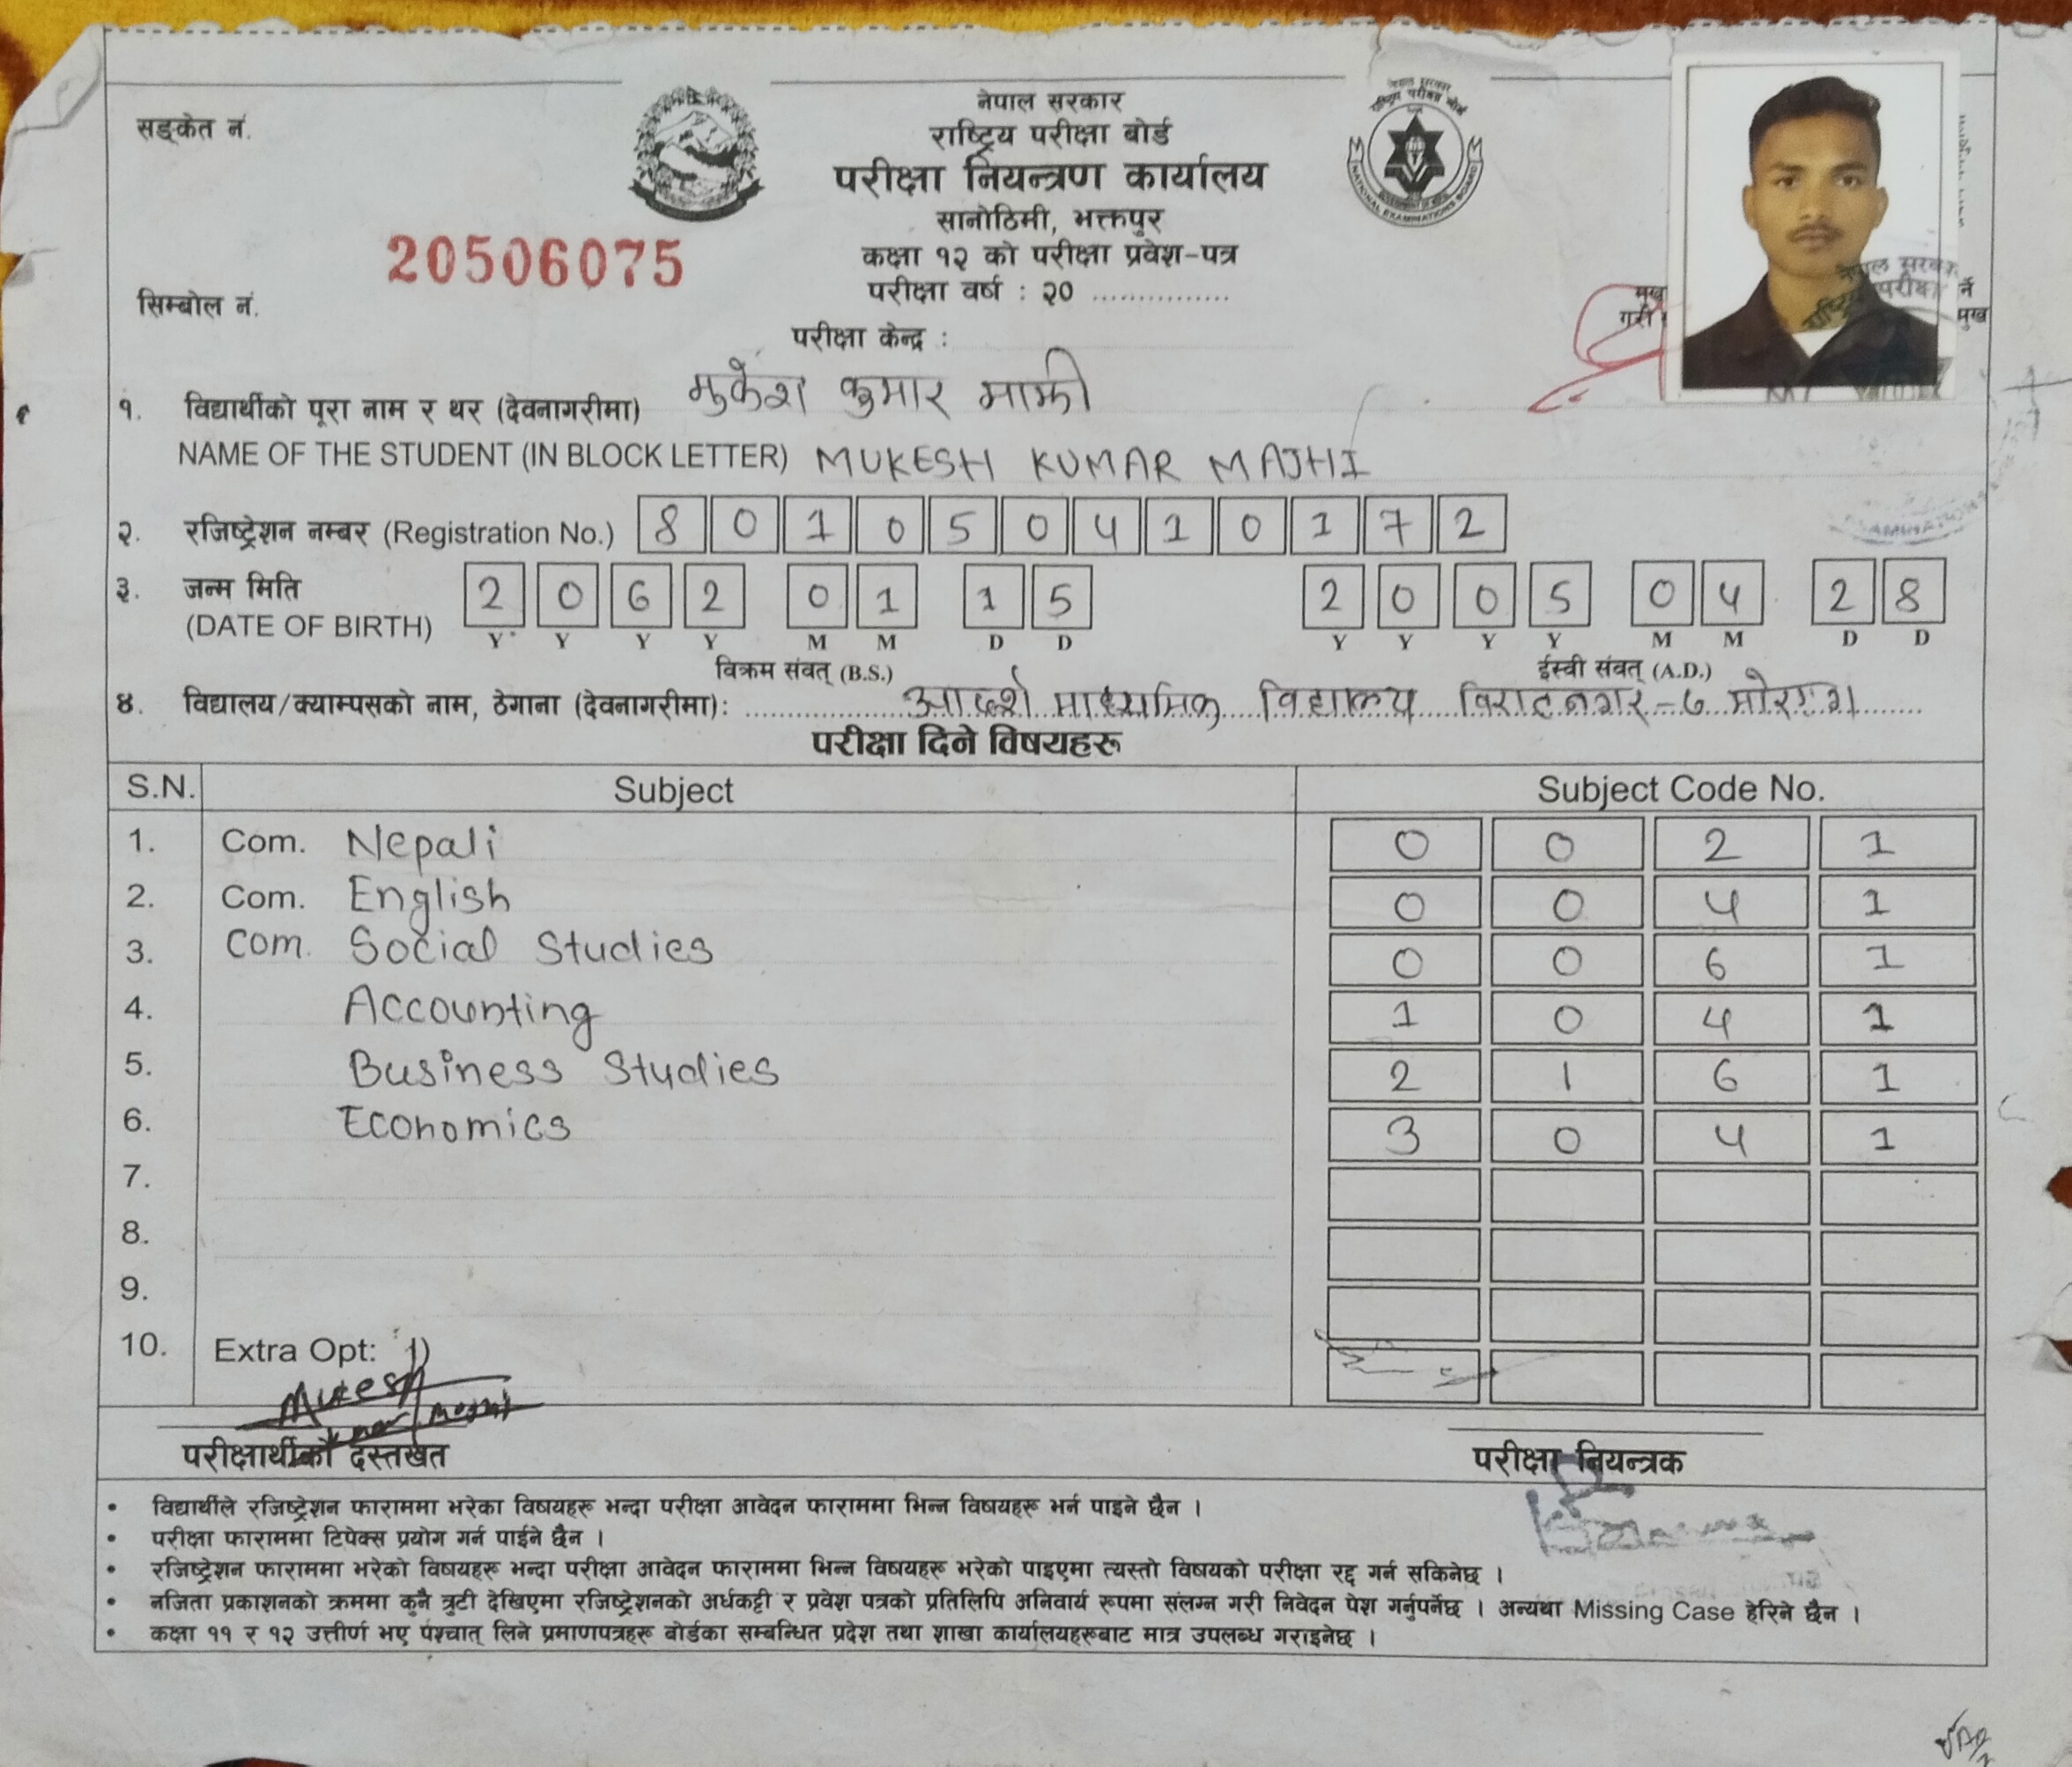 सङ्केत नं.
नेपाल सरकार
राष्ट्रिय परीक्षा बोर्ड
परीक्षा नियन्त्रण कार्यालय
सानोठिमी, भक्तपुर
कक्षा १२ को परीक्षा प्रवेश-पत्र
परीक्षा वर्ष : २० ...............
20506075
सिम्बोल नं.
परीक्षा केन्द्र :
NATIONAL EXAMINATIONS BOARD
नेपाल सरकार
१. विद्यार्थीको पूरा नाम र थर (देवनागरीमा) मुकेश कुमार माझी
NAME OF THE STUDENT (IN BLOCK LETTER) MUKESH KUMAR MAJHI
२. रजिष्ट्रेशन नम्बर (Registration No.) 8 0 1 0 5 0 4 1 0 1 7 2
३. जन्म मिति 2 0 6 2 0 1 1 5 2 0 0 5 0 4 2 8
(DATE OF BIRTH) Y Y Y Y M M D D Y Y Y Y M M D D
विक्रम संवत् (B.S.) ईस्वी संवत् (A.D.)
४. विद्यालय/क्याम्पसको नाम, ठेगाना (देवनागरीमा): आदर्श माध्यमिक विद्यालय विराटनगर-७ मोरङ्ग
परीक्षा दिने विषयहरू
S.N. Subject Subject Code No.
1. Com. Nepali 0 0 2 1
2. Com. English 0 0 4 1
3. Com. Social Studies 0 0 6 1
4. Accounting 1 0 4 1
5. Business Studies 2 1 6 1
6. Economics 3 0 4 1
7.
8.
9.
10. Extra Opt: 1)
Mukesh
परीक्षार्थीको दस्तखत परीक्षा नियन्त्रक
• विद्यार्थीले रजिष्ट्रेशन फाराममा भरेका विषयहरू भन्दा परीक्षा आवेदन फाराममा भिन्न विषयहरू भर्न पाइने छैन ।
• परीक्षा फाराममा टिपेक्स प्रयोग गर्न पाईने छैन ।
• रजिष्ट्रेशन फाराममा भरेको विषयहरू भन्दा परीक्षा आवेदन फाराममा भिन्न विषयहरू भरेको पाइएमा त्यस्तो विषयको परीक्षा रद्द गर्न सकिनेछ ।
• नजिता प्रकाशनको क्रममा कुनै त्रुटी देखिएमा रजिष्ट्रेशनको अर्धकट्टी र प्रवेश पत्रको प्रतिलिपि अनिवार्य रूपमा संलग्न गरी निवेदन पेश गर्नुपर्नेछ । अन्यथा Missing Case हेरिने छैन ।
• कक्षा ११ र १२ उत्तीर्ण भए पश्चात् लिने प्रमाणपत्रहरू बोर्डका सम्बन्धित प्रदेश तथा शाखा कार्यालयहरूबाट मात्र उपलब्ध गराइनेछ ।